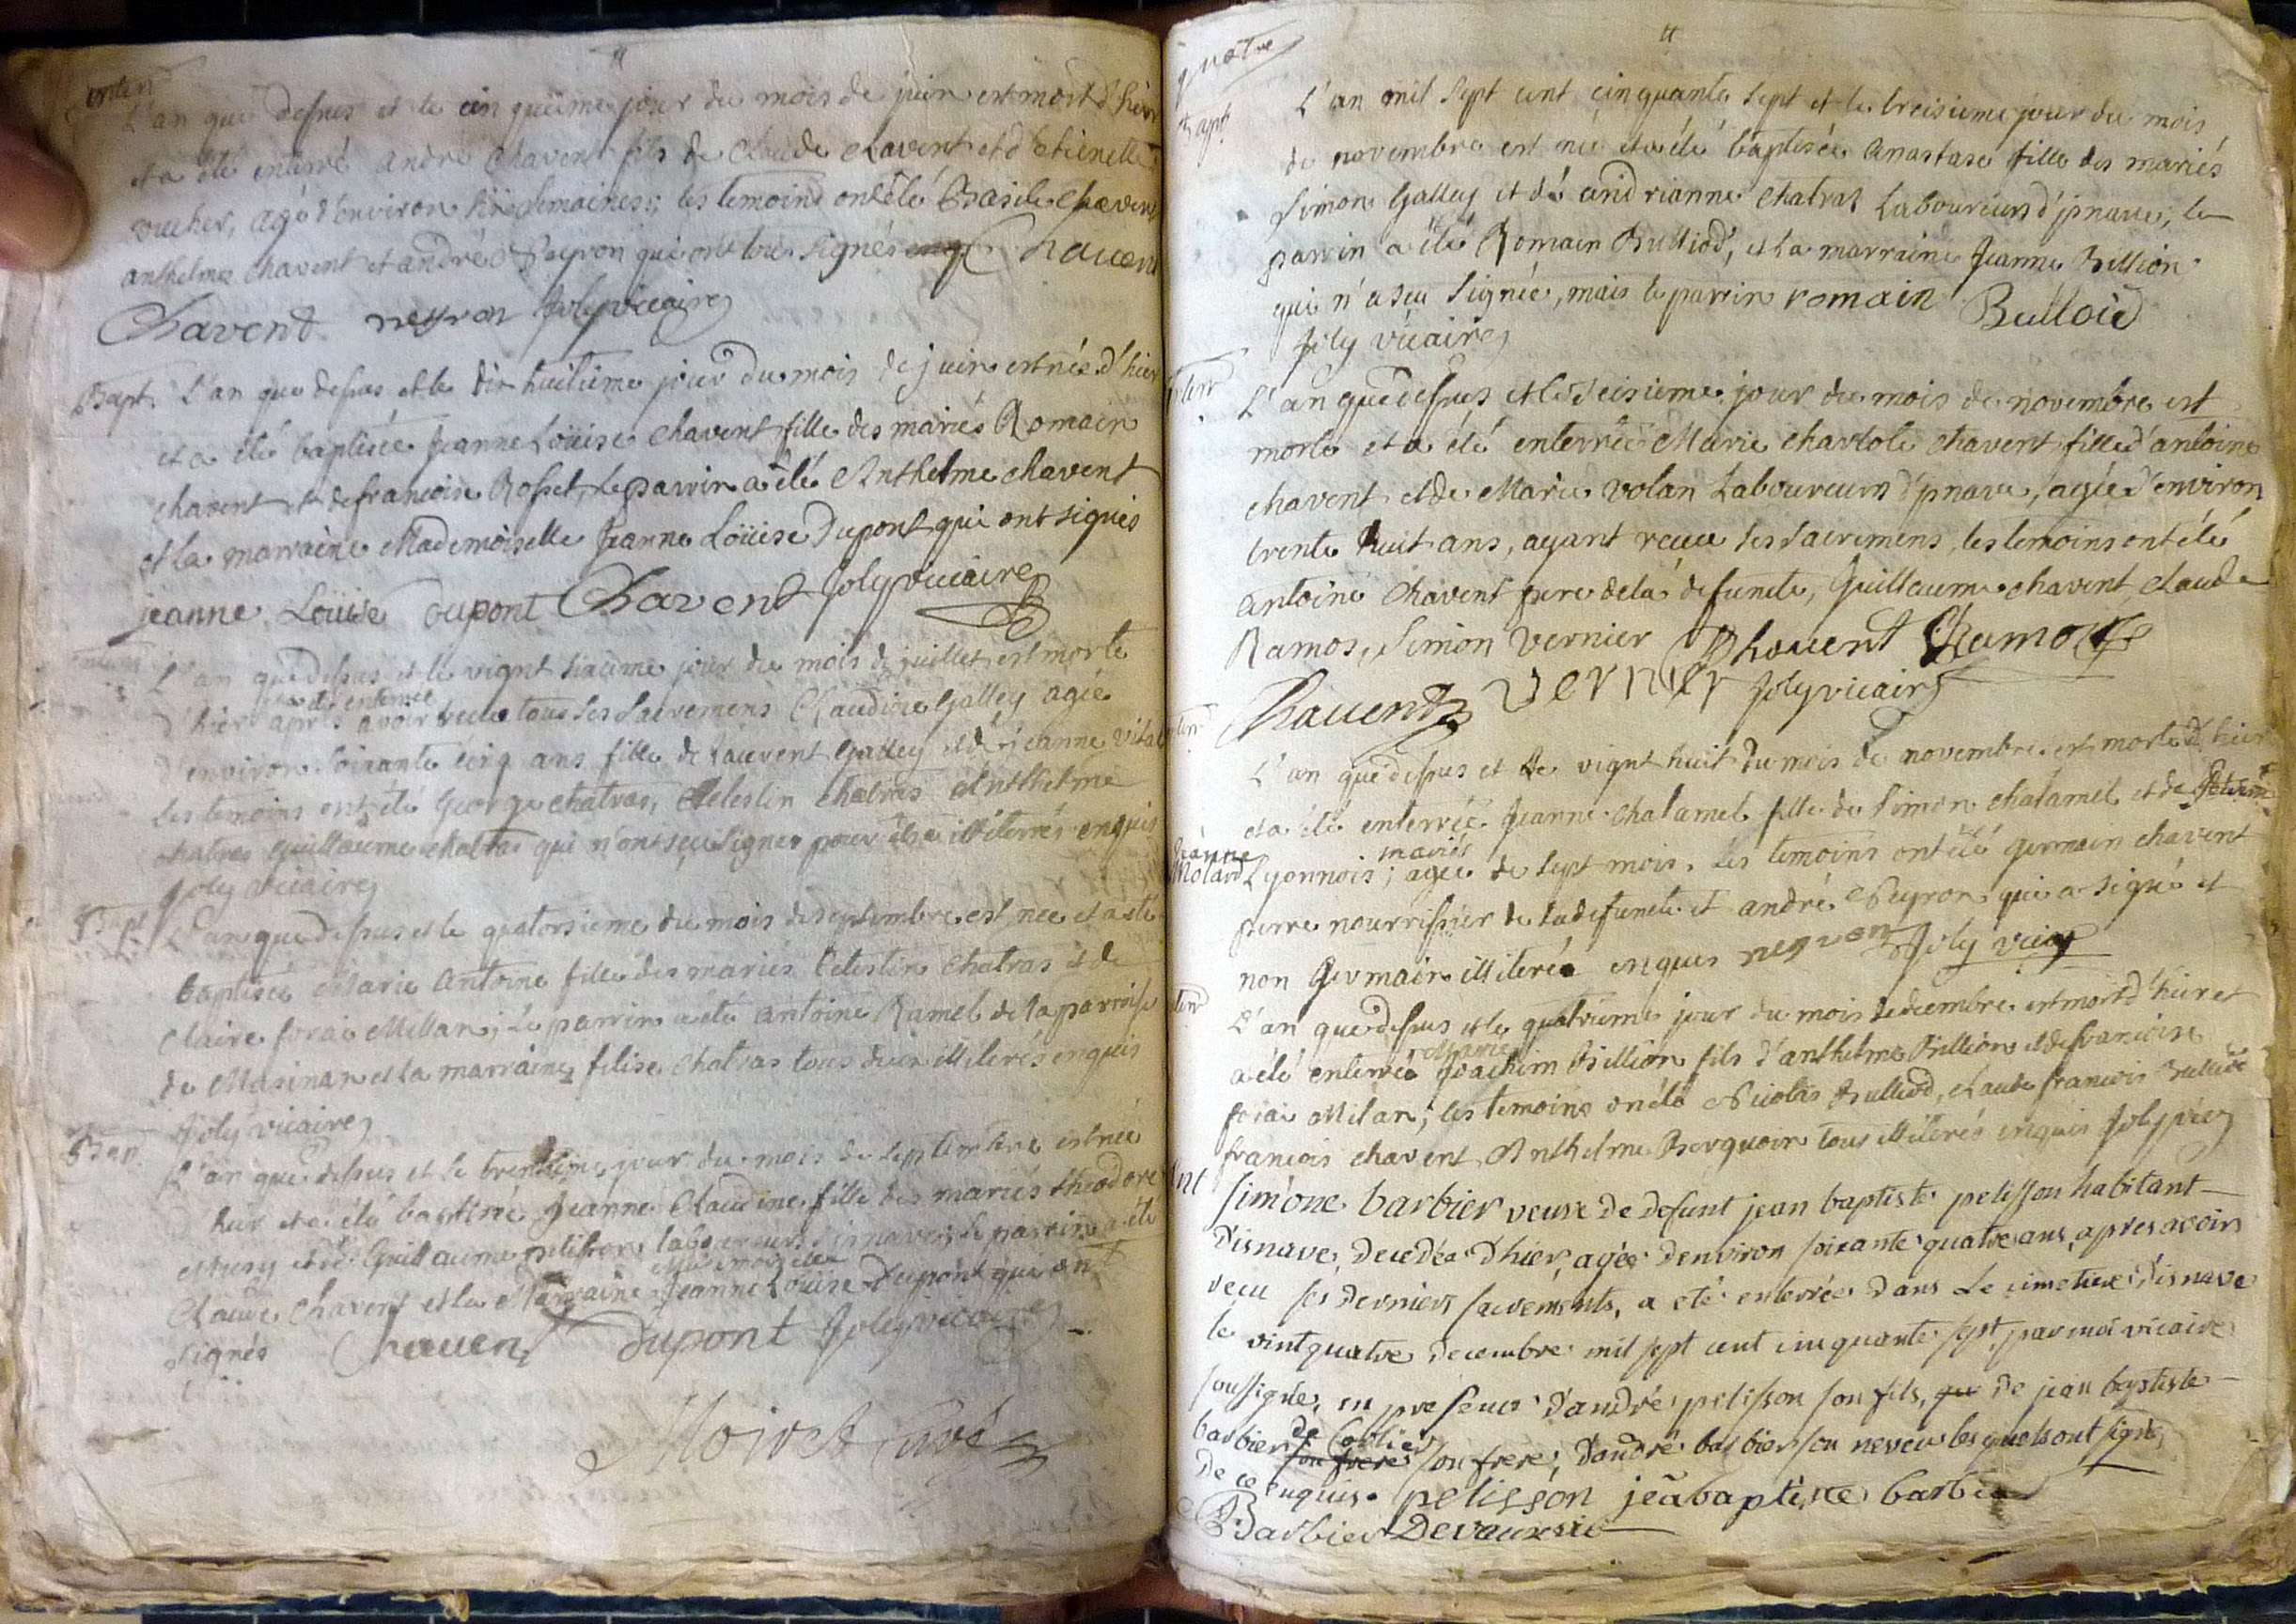 enterr
L'an que dessus et le cinquiême jour du mois de juin est mort d'hier
et a été enterré andré Chavent fils de Claude Chavent et d'Etienette
vucher, agé d'environ semaines; les temoins ont été Basile Chavent
anthelme Chavent et andré Neyron qui ont tous signés Chavent
Chavent neyron Joly vicaire
Bapt. L'an que dessus et le dix huitiême jour du mois de juin est née d'hier
et a été baptisée Jeanne Loüise Chavent fille des mariés Romain
chavent et de francoise Rosset, le parrin a été Anthelme chavent
et la marraine Mademoiselle Jeanne Loüise Dupont qui ont signés
jeanne Loüise dupont Chavent Joly vicaire
L'an que dessus et le vignt sixiême jour du mois de juillet est morte
d'hier et a été enterrée après avoir receu tous ses Sacremens Claudine Galley agée
d'environ soixante cinq ans fille de Laurent Galley et de jeanne vital
les temoins ont été George chatras, Celestin chatras Anthelme
chatras Guillaume chatras qui n'ont sçu signer pour être illiterés enquis
Joly vicaire
Bapt L'an que dessus et le quatorsieme du mois de septembre est née et a été
baptisée Marie Antoine fille des mariés Celestin Chatras et de
Claire forai Millan; Le parrin a été antoine Ramel de la parroisse
de Masinan et la marraine felise Chatras tous deux illiterés enquis
Joly vicaire
Bap. L'an que dessus et le trentiême jour du mois de septembre est née
d'hier et a été baptisée Jeanne Claudine fille des mariés théodore
Musy et de Guillaume pelisson laboureurs d'isnave; le parrin a été
Claude Chavent et la Marraine mademoiselle Jeanne Loüise Dupont qui ont
signés Chavent Dupont Joly vicaire
Moiret curé
quatre
Bapt. L'an mil sept cent cinquante sept et le treisieme jour du mois
de novembre est née et a été baptisée Anastase fille des mariés
Simon Galley et de andrianne Chatras Laboureurs d'jsnave; le
parrin a été Romain Bulliod, et la marraine Jeanne Billion
qui n'a sçu signée, mais le parrin romain Bulloid
Joly vicaire
enterr L'an que dessus et le seisieme jour du mois de novembre est
morte et a été enterrée Marie charlote chavent fille d'antoine
chavent et de Marie volan Laboureurs d'jsnave, agée d'environ
trente huit ans, ayant receu ses Sacremens, les temoins ont été
antoine Chavent pere de la defuncte, Guilleaume chavent, claude
Ramos, Simon Vernier Chavent Ramos
Chavent vernier Joly vicaire
enterr L'an que dessus et le vignt huit du mois de novembre est morte d'hier
et a été enterrée Jeanne Chatamel fille de Simon chatamel et de
Jeanne Molard Lyonnois; mariés agée de sept mois. Les temoins ont été germain chavent
pere nourrissier de la defuncte et andré Neyron qui a signé et
non Germain illiteré enquis neyron Joly vicaire
enter L'an que dessus et le quatriême jour du mois de decembre est mort d'hier et
a été enterré Marie Joachim Billion fils d'anthelme Billion et de francoise
forai Milan; les temoins on été Nicolas Bulliod, claude francois Bulliod
francois chavent, Anthelme Berquoir tous illiterés enquis Joly vic
Ent Simone barbier veuve de defunt jean baptiste pelisson habitant
D'isnave, decedée d'hier, agée d'environ soixante quatre ans, apres avoir
recu ses derniers sacrements, a eté enterrée dans le cimetiere d'isnave
le vintquatre decembre mil sept cent cinquante sept, par moi vicaire
soussigné, en presence d'andré pelisson son fils, de jean baptiste
barbier son frere, d'andré barbier son neveu les quels ont signé
De ce enquis. pelisson jeã baptiste barbier
Barbier Devaurexis